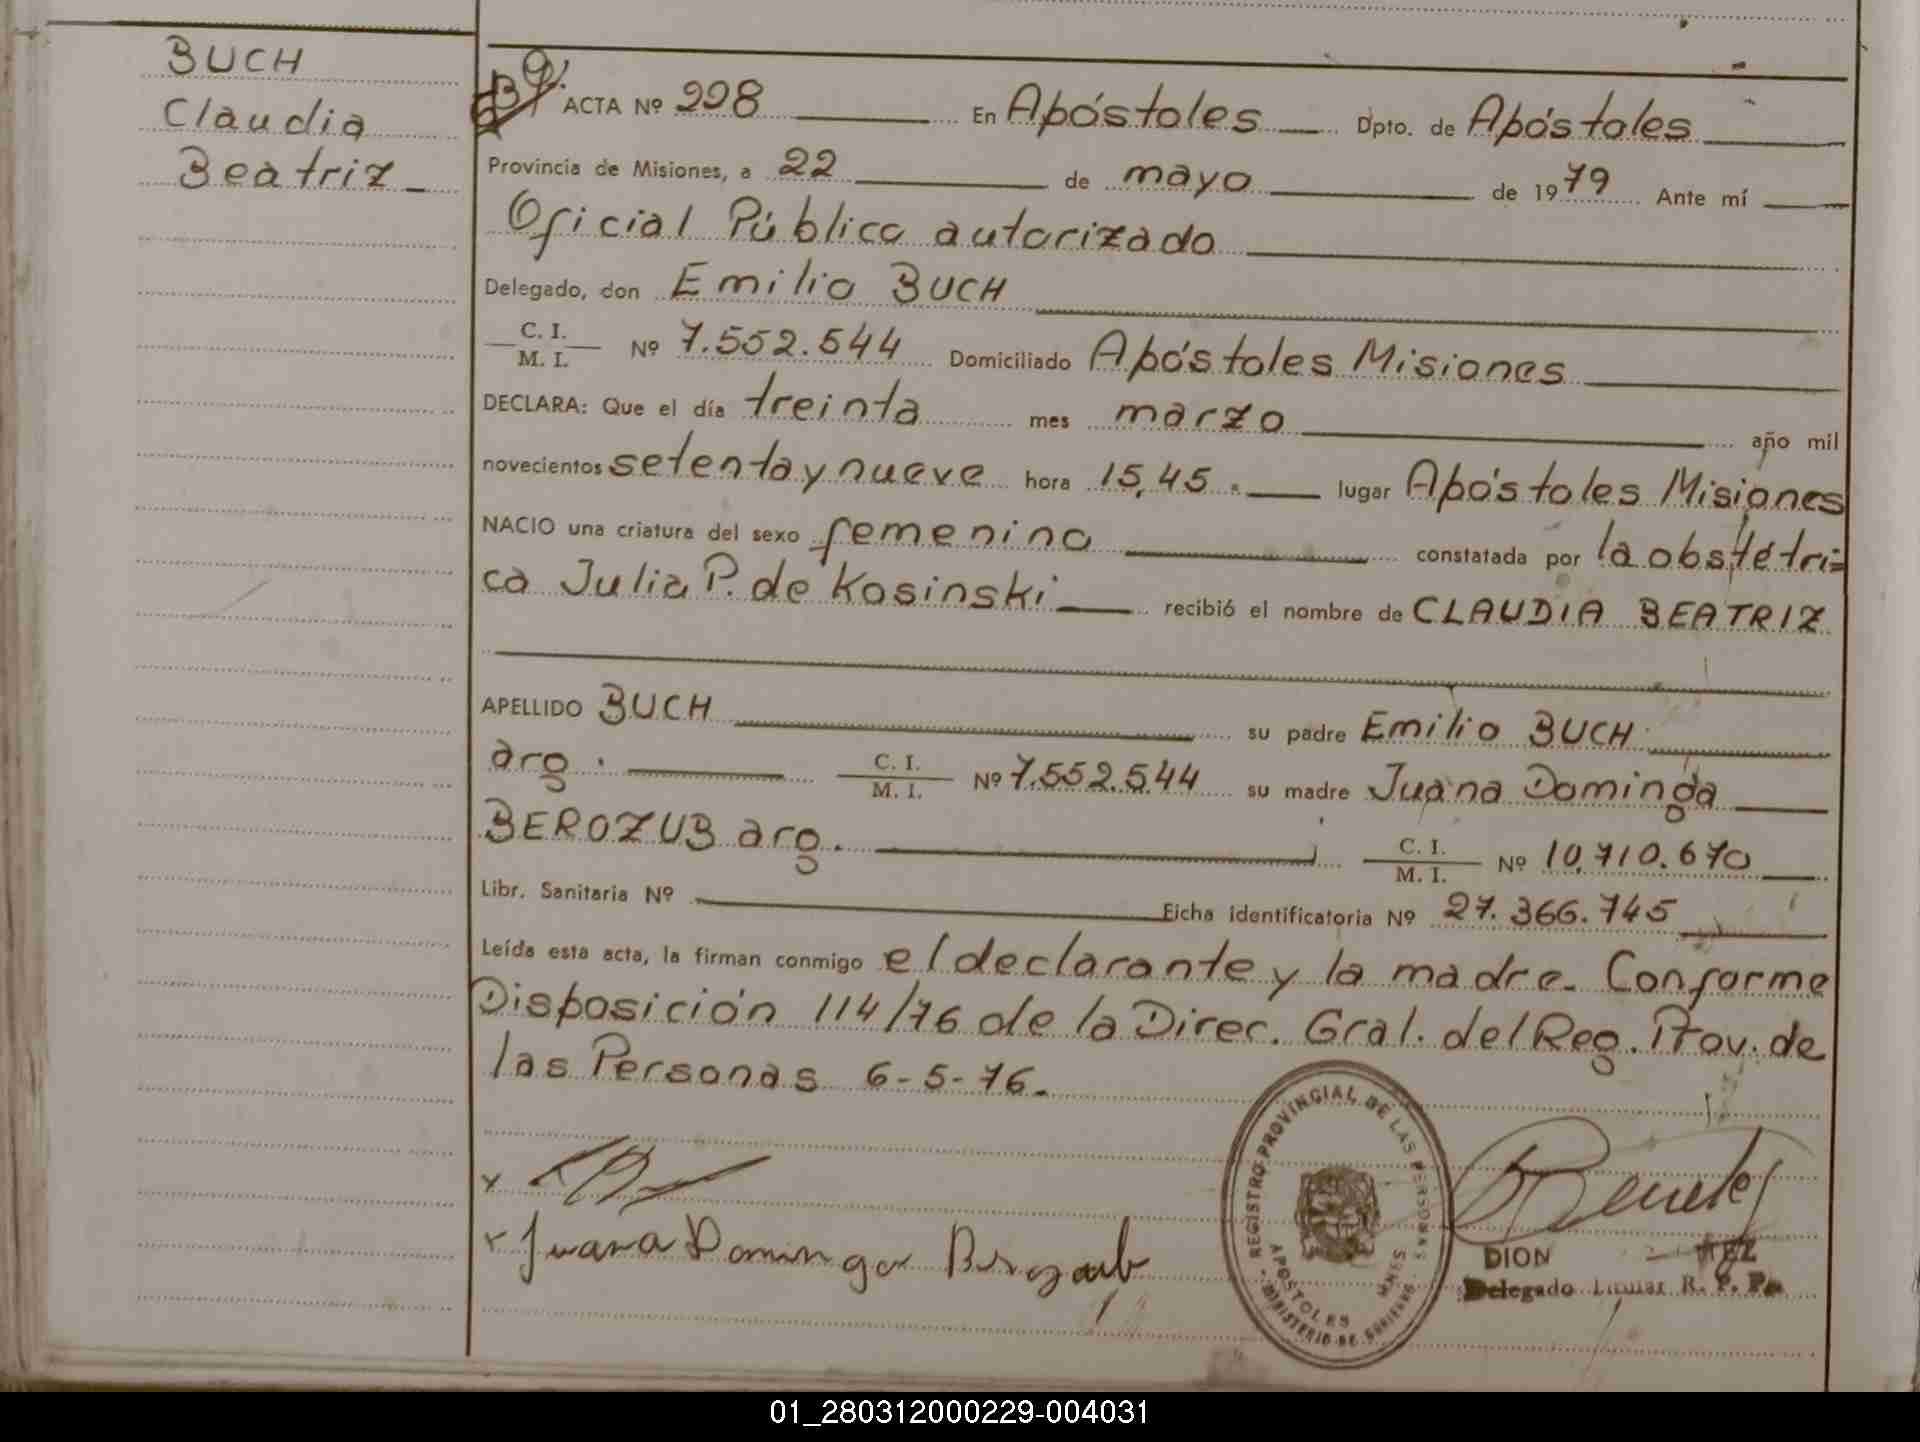 BUCH
Claudia
Beatriz
ACTA Nº 228 En Apóstoles Dpto. de Apóstoles
Provincia de Misiones, a 22 de mayo de 1979 Ante mí
Oficial Público autorizado
Delegado, don Emilio BUCH
C. I.
M. I. Nº 7.552.544 Domiciliado Apóstoles Misiones
DECLARA: Que el día treinta mes marzo año mil
novecientos setenta y nueve hora 15,45 lugar Apóstoles Misiones
NACIO una criatura del sexo femenino constatada por la obstétri=
ca Julia P. de Kosinski recibió el nombre de CLAUDIA BEATRIZ
APELLIDO BUCH su padre Emilio BUCH
arg. C. I.
M. I. Nº 7.552.544 su madre Juana Dominga
BEROZUB arg. C. I.
M. I. Nº 10,710.670
Libr. Sanitaria Nº Ficha identificatoria Nº 27.366.745
Leída esta acta, la firman conmigo el declarante y la madre. Conforme
Disposición 114/76 de la Direc. Gral. del Reg. Prov. de
las Personas 6-5-76.
REGISTRO PROVINCIAL DE LAS PERSONAS
APOSTOLES MNES
MINISTERIO DE GOBIERNO
Juana Dominga
DION
Delegado Titular R. P. P.
01_280312000229-004031